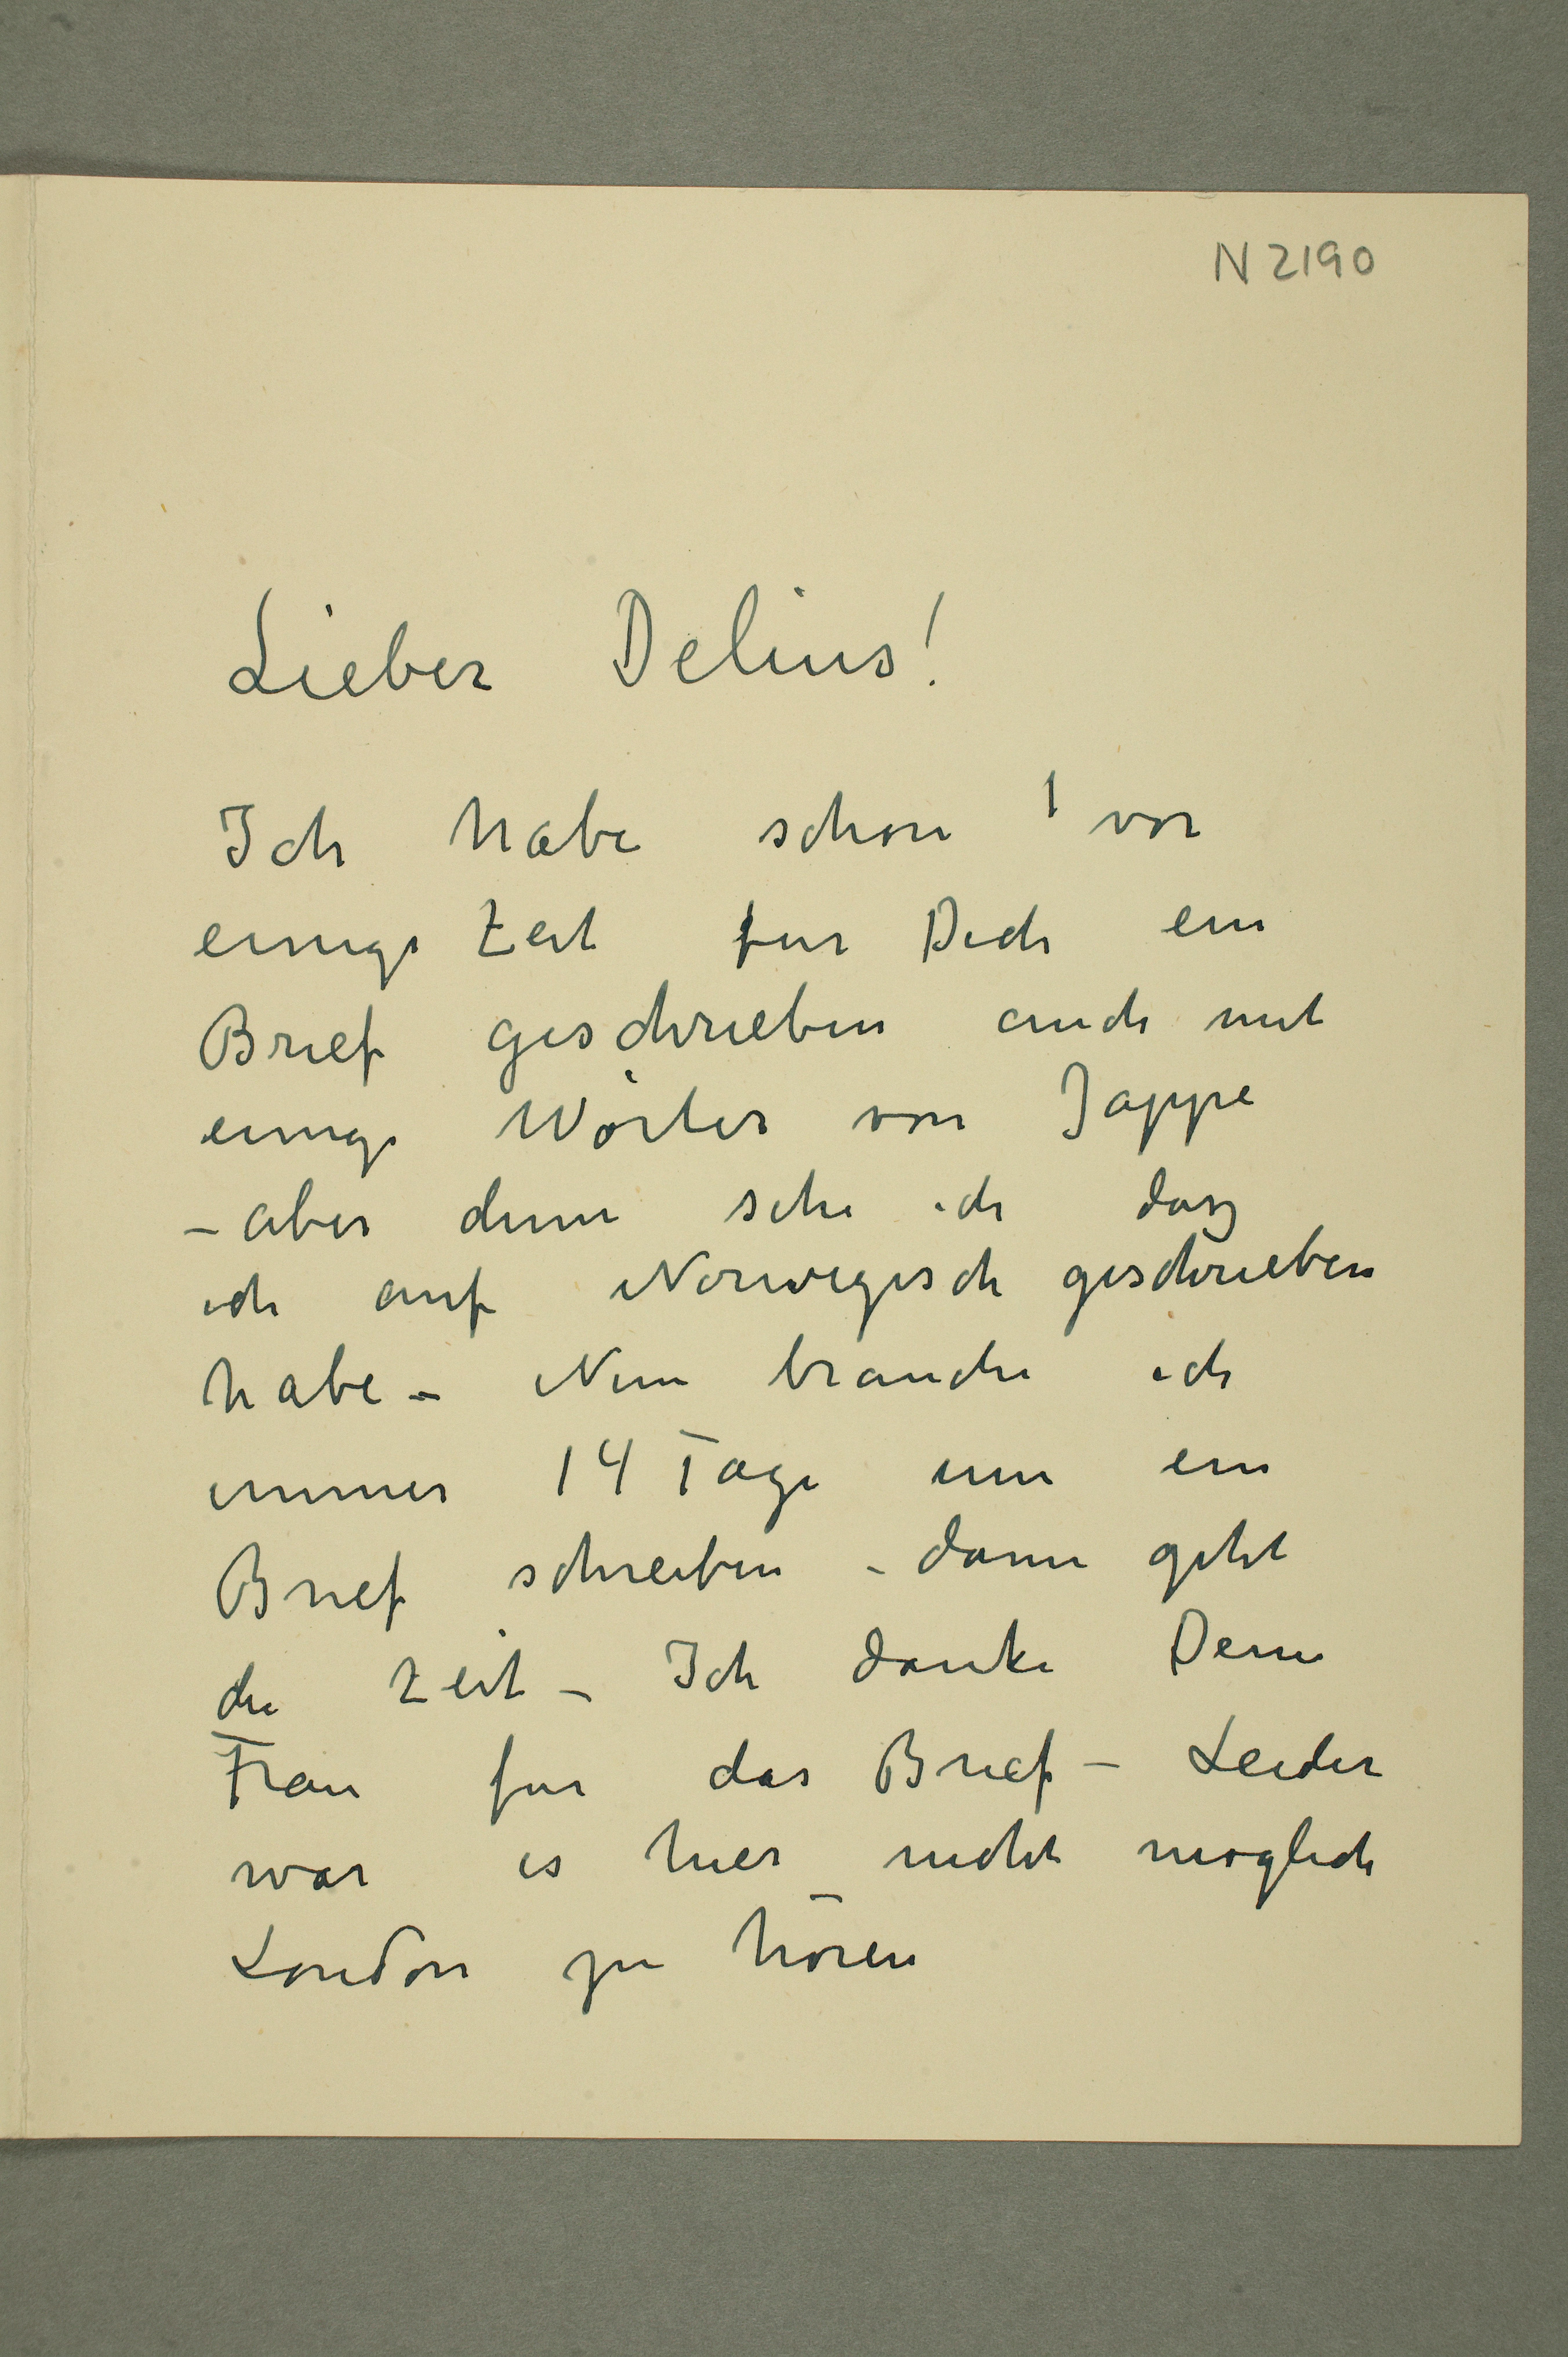 N 2190
Lieber Delius!
Ich habe schon vor
einige Zeit fur Dich ein
Brief geschrieben auch mit
einige Wörter von Jappe
– aber dann sehe ich dasz
ich auf Norwegisch geschrieben
habe – Nun brauche ich
immer 14 Tage um ein
Brief schreiben – dann geht
die Zeit – Ich danke Deine
Frau fur das Brief – Leider
war es hier nicht moglich
London zu hören